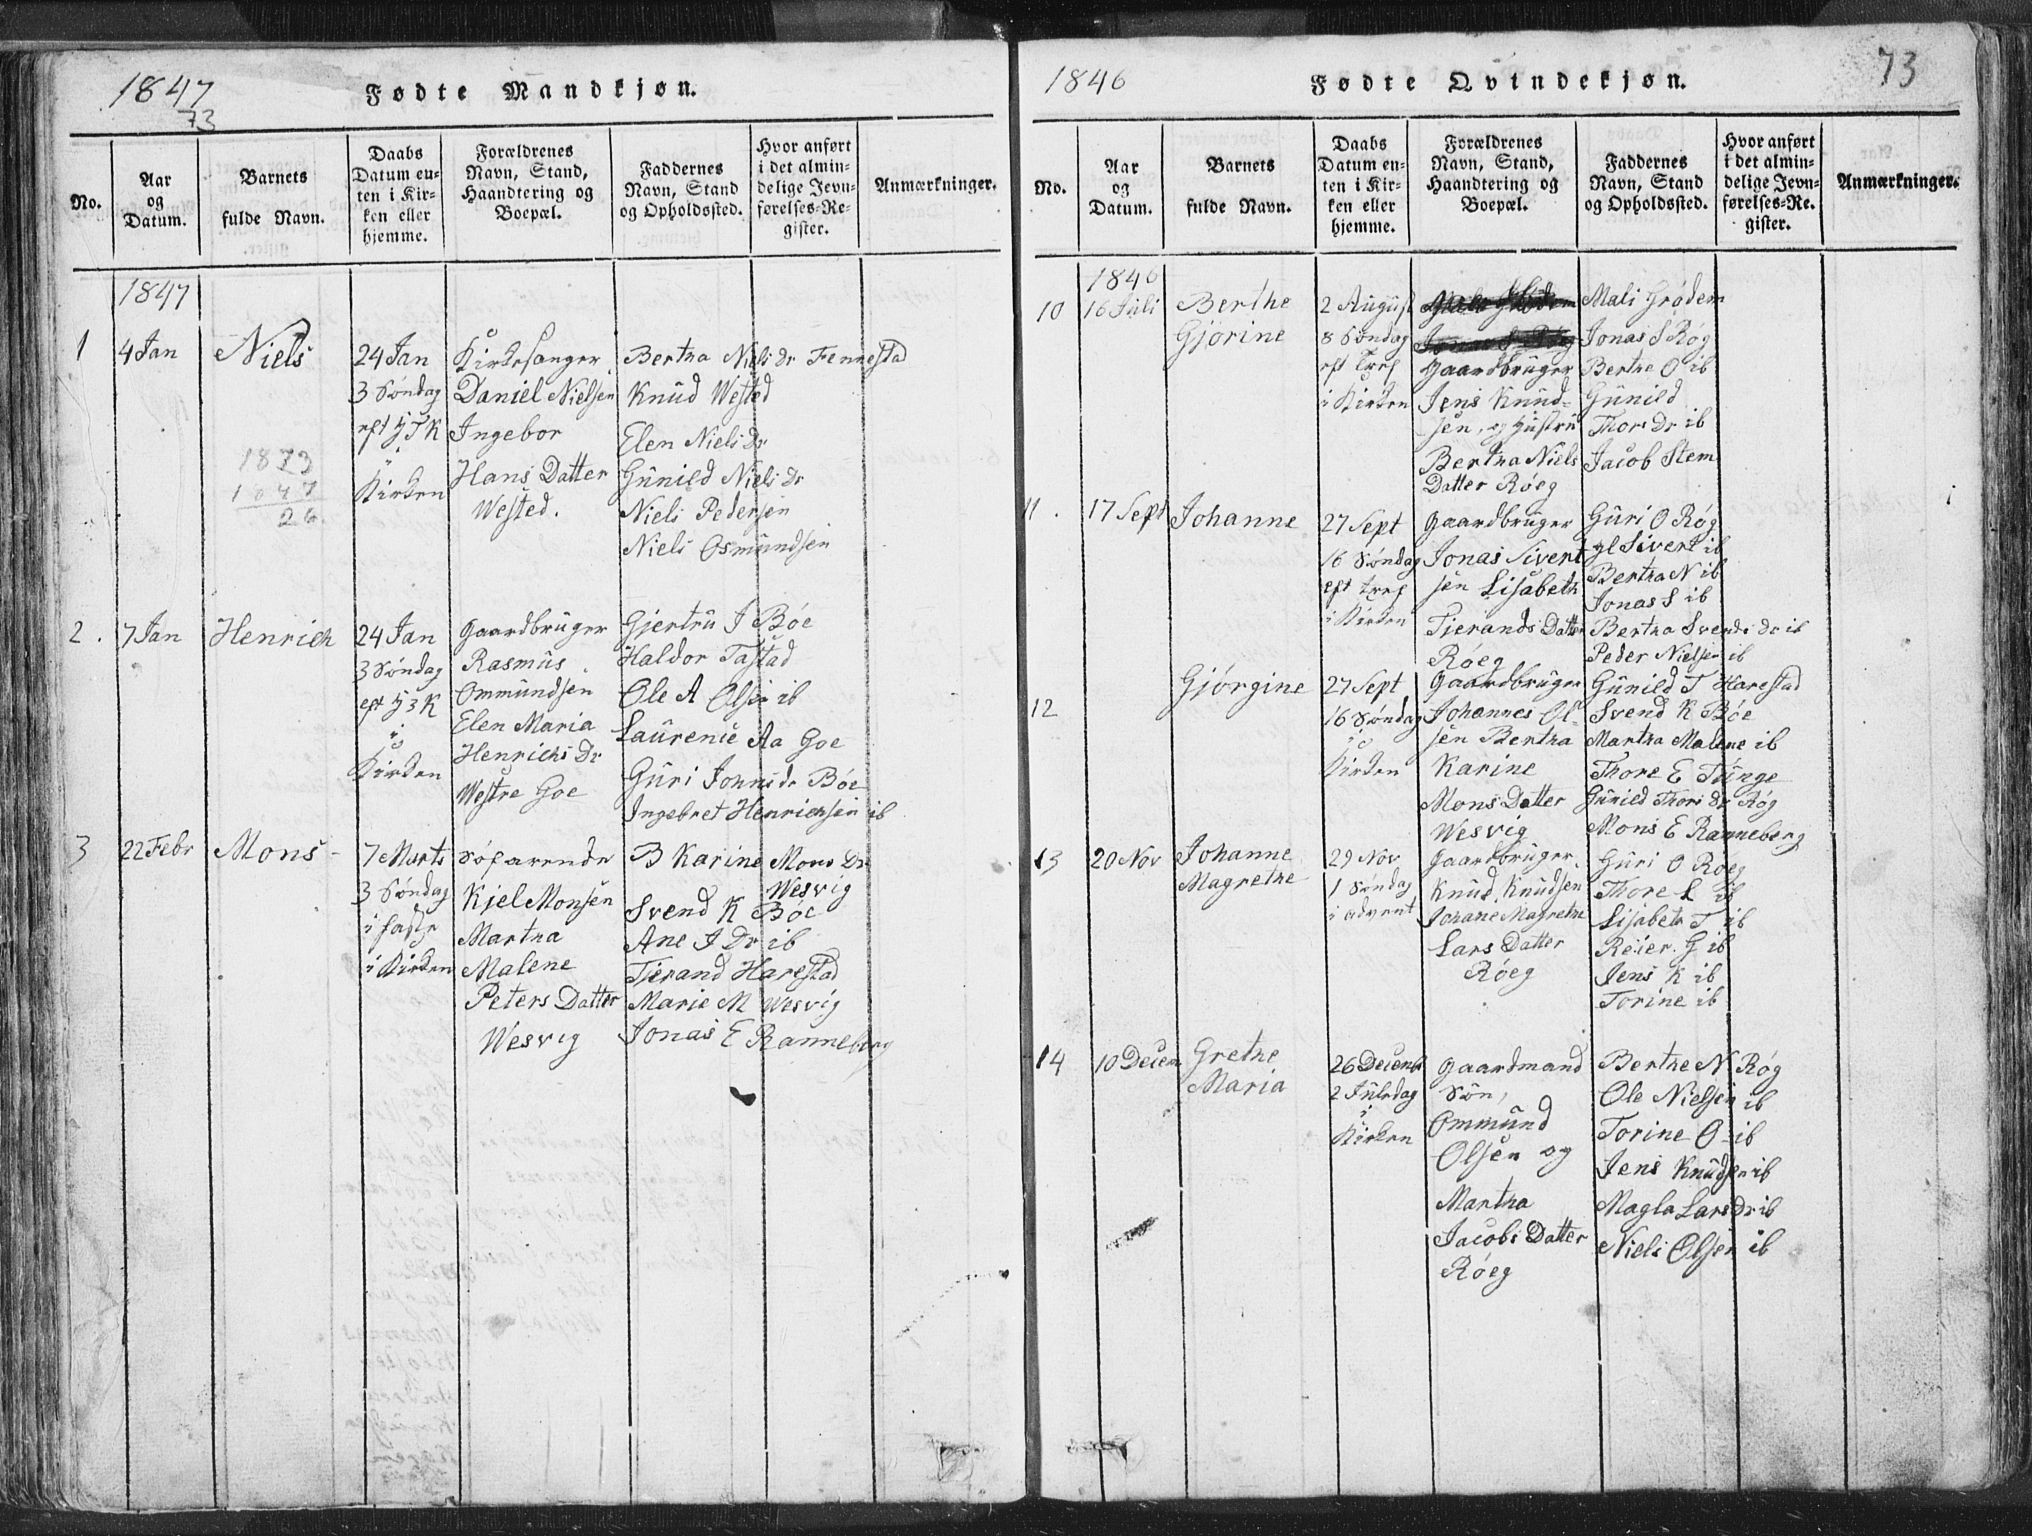 1847
73
Fødte Mandkjøn.
No.
Aar
og
Datum.
Barnets
fulde Navn.
Daabs
Datum en-
ten i Kir-
ken eller
hjemme.
Forældrenes
Navn, Stand,
Haandtering og
Boepæl.
Faddernes
Navn, Stand
og Opholdssted.
Hvor anført
i det almin-
delige Jevn-
førelses-Re-
gister.
Anmærkninger.
1847
1
4 Jan
Niels
1873
1847
26.
24 Jan
3 Søndag
eft H 3 K
i
Kirken
Kirkesanger
Daniel Nielsen
Ingebor
Hans Datter
Wested.
Bertha Niels Dr Fennestad
Knud Wested
Elen Niels Dr
Gunild Niels Dr
Niels Pedersen
Niels Osmundsen
2.
7 Jan
Henrich
24 Jan
3 Søndag
eft H 3 K
i
Kirken
Gaardbruger
Rasmus
Ommundsen
Elen Maria
Henrichs Dr
Westre Goe
Gjertru J Bøe
Haldor Tastad
Ole A Olsen ib
Laurenie Aa Goe
Guri Johns dr Bøe
Ingebret Henrichsen ib
3
22 Febr
Mons
7 Marts
3 Søndag
i faste
i Kirken
Søfarende
Kjel Monsen
Martha
Malene
Peters Datter
Wesvig
B Karine Mons Dr
Wesvig
Svend K Bøe
Ane J Dr ib
Tierand Harestad
Marie M Wesvig
Jonas E Ranneberg
1846
Fødte Qvindekjøn.
73
No.
Aar
og
Datum.
Barnets
fulde Navn.
Daabs
Datum en-
ten i Kir-
ken eller
hjemme.
Forældrenes
Navn, Stand,
Haandtering og
Boepæl.
Faddernes
Navn, Stand
og Opholdssted.
Hvor anført
i det almin-
delige Jevn-
førelses-Re-
gister.
Anmærkninger.
1846
10
16 Juli
Berthe
Gjørine
2 August
8 Søndag
eft tref
i Kirken
Gaardbruger
Jens Knud-
sen, og Hustru
Bertha Niels
Datter Røeg
Mali Grødem
Jonas S Røg
Berthe O ib
Gunild
Thors Dr ib
Jacob Stem
11.
17 Sept
Johanne
27 Sept
16 Søndag
eft tref
i Kirken
Gaardbruger
Jonas Sivert
sen Lisabeth
Tierands Datter
Røeg
Guri O Røg
gl Sivert ib
Bertha N ib
Jonas S ib
Bertha Svends Dr ib
Peder Nielsen ib
12
Gjørgine
27 Sept
16 Søndag
i
Kirken
Gaardbruger
Johannes Ol-
sen Bertha
Karine
Mons Datter
Wesvig
Gunild T Harestad
Svend K Bøe
Martha Malene ib
Thore E Tunge
Gunild Thors dr Røg
Mons E Ranneberg
13
20 Nov
Johanne
Magrethe
29 Nov
1 Søndag
i advent
Gaardbruger
Knud Knudsen
Johane Magrethe
Lars Datter
Røeg
Guri O Røeg
Thore L ib
Lisabeth T ib
Reier G ib
Jens K ib
Torine ib
14
10 Decem
Grethe
Maria
26 Decembr
2 Juledag
i
Kirken
Gaardmand
Søn,
Ommund
Olsen og
Martha
Jacobs Datter
Røeg
Berthe N Røg
Ole Nielsen ib
Torine O ib
Jens Knudsen ib
Magla Lars Dr ib
Niels Olsen ib